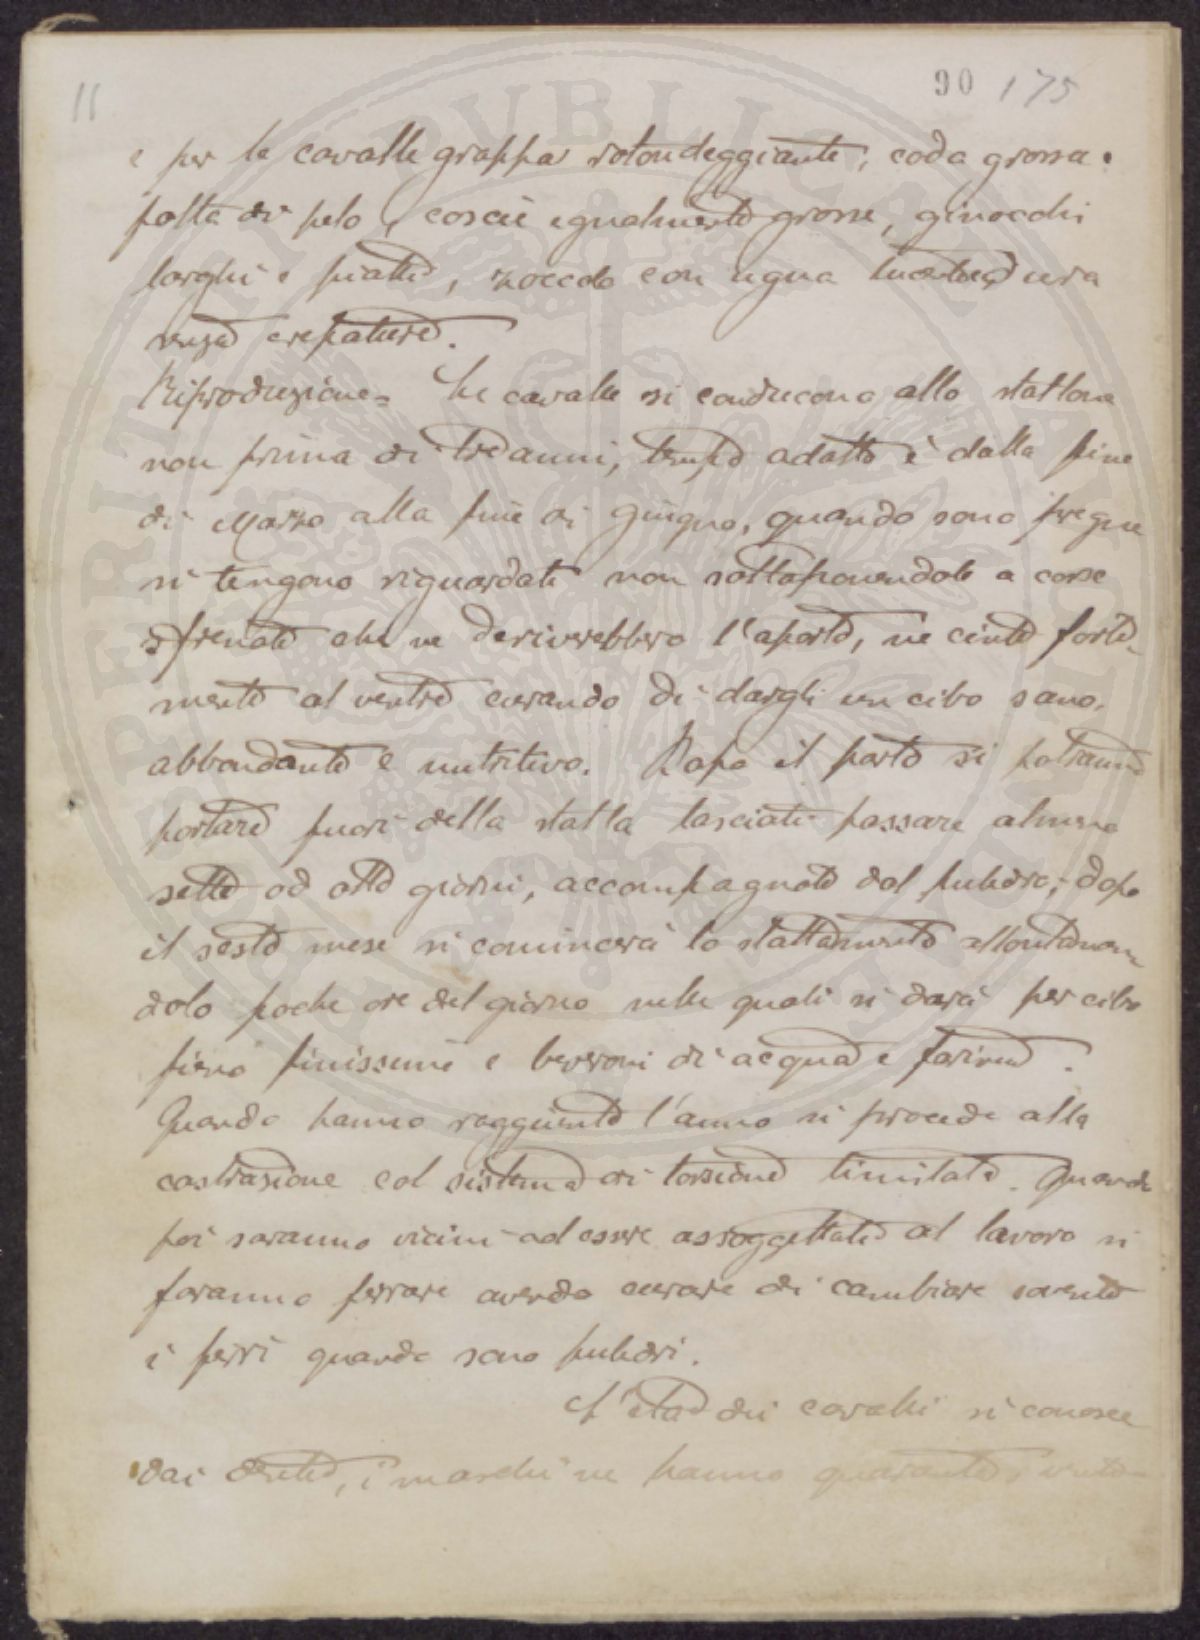 11
90 175
e per le cavalle groppa rotondeggiante, coda grossa.
folta di pelo, coscie egualmente grosse, ginocchi
larghi e piatti, zoccolo con ugna nera
senza crepature.
Riproduzione = Le cavalle si conducono allo stallone
non prima di tre anni, tempo adatto è dalla fine
di Marzo alla fine di giugno, quando sono pregne
si tengono riguardate non sottoponendole a corse
sfrenate che ne deriverebbero l'aborto, ne cinte forte-
mente al ventre curando di dargli un cibo sano,
abbondante e nutritivo. Dopo il parto si potranno
portare fuori della stalla lasciati passare almeno
sette od otto giorni, accompagnate dal puledro; dopo
il sesto mese si comincerà lo slattamento allontanan
dolo poche ore del giorno nelle quali si darà per cibo
fieno finissimo e beveroni di acqua e farina.
Quando hanno raggiunto l'anno si procede alla
castrazione col sistema di torsione limitata. Quando
poi saranno vicini ad essere assoggettati al lavoro si
faranno ferrare avendo curare di cambiare sovente
i ferri quando sono puledri.
L'età dei cavalli si conosce
dai denti, i maschi ne hanno quaranta,